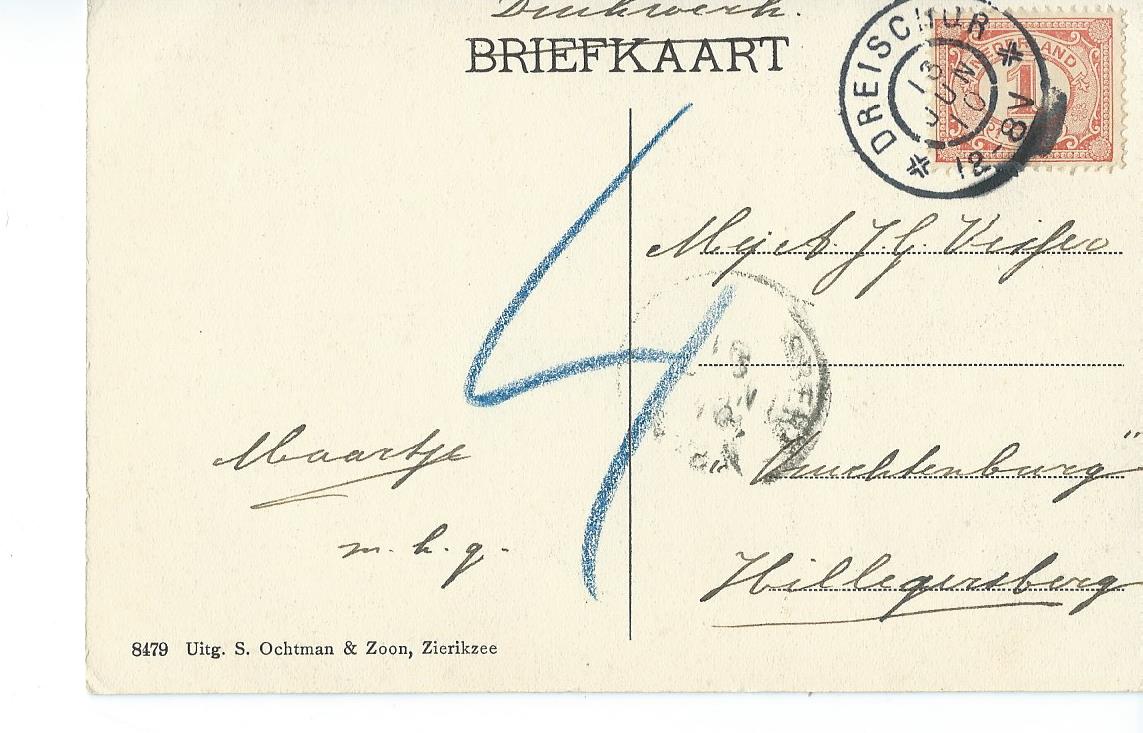 Drukwerk.
BRIEFKAART
DREISCHOR
13
JUN
10
12-8V
NEDERLAND
1
Mej A. J. G. Visser
„Vruchtenburg”
Hillegersberg
4
Maartje
m. h. g.
8479 Uitg. S. Ochtman & Zoon, Zierikzee